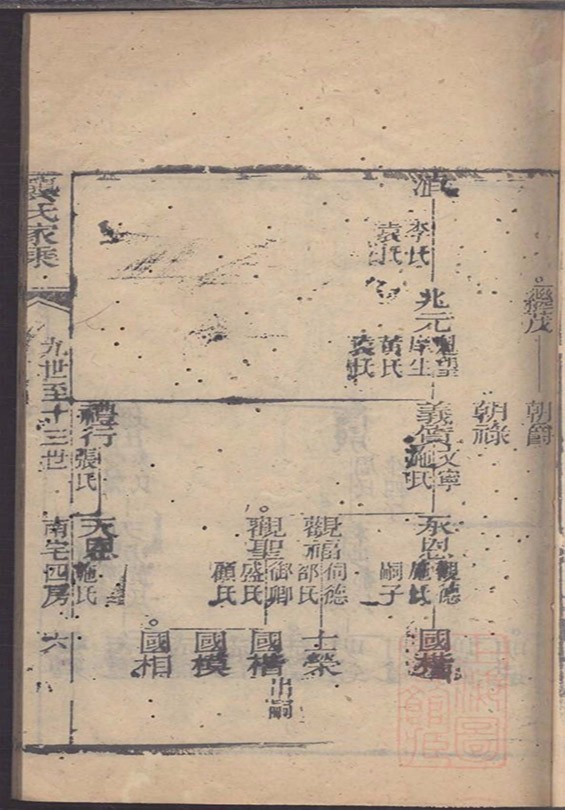 繼茂
朝爵
朝祿
李氏
袁氏
兆元
庠生
黃氏
袁氏
義賓
文寧
施氏
永恩
觀德
施氏
嗣子
國楷
觀福
伺德
邵氏
士榮
觀聖
御卿
盛氏
顧氏
國楷
出嗣
國模
國相
禮行
張氏
天恩
施氏
氏家乘
九世至十三世
南宅四房
六